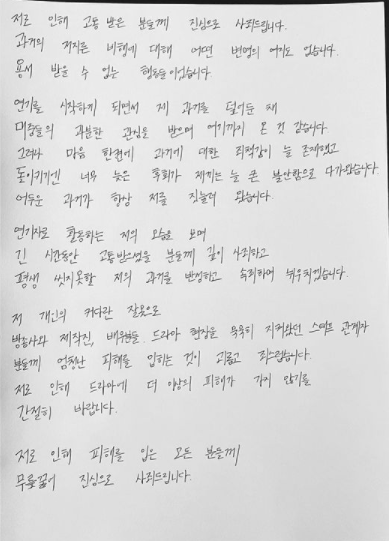 저로 인해 고통 받은 분들께 진심으로 사죄드립니다.
과거에 저지른 비행에 대해 어떤 변명의 여지도 없습니다.
용서 받을 수 없는 행동들이었습니다.
연기를 시작하게 되면서 제 과거를 덮어둔 채
대중들의 과분한 관심을 받으며 여기까지 온 것 같습니다.
그러나 마음 한켠에 과거에 대한 죄책감이 늘 존재했고
돌이키기엔 너무 늦은 후회가 저에게는 늘 큰 불안함으로 다가왔습니다.
어두운 과거가 항상 저를 짓눌러 왔습니다.
연기자로 활동하는 저의 모습을 보며
긴 시간동안 고통받으셨을 분들께 깊이 사죄하고
평생 씻지못할 저의 과거를 반성하고 속죄하며 뉘우치겠습니다.
저 개인의 커다란 잘못으로
방송사와 제작진, 배우분들, 드라마 현장을 묵묵히 지켜왔던 스태프 관계자
분들께 엄청난 피해를 입히는 것이 괴롭고 죄스럽습니다.
저로 인해 드라마에 더 이상의 피해가 가지 않기를
간절히 바랍니다.
저로 인해 피해를 입은 모든 분들께
무릎꿇어 진심으로 사죄드립니다.